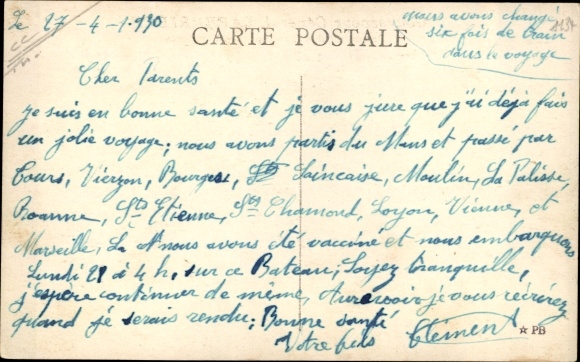 Le 27-4-1930
nous avons changé
six fois de train
dans le voyage
CARTE POSTALE
Cher Parents
Je suis en bonne santé et je vous jure que j'ai déjà fais
un jolie voyage; nous avons partis du Mans et passé par
Tours, Vierzon, Bourges, Saincaise, Moulin, La Palisse,
Roanne, St Etienne, St Chamond, Loyon, Vienne, et
Marseille, La nous avons été vacciné et nous embarquons
Lundi 28 à 4 h, sur ce Bateau; Soyez tranquille,
j'espère continuer de même, Aurevoir je vous réécrirez
quand je serais rendu; Bonne santé
Votre fils Clément
☆ PB